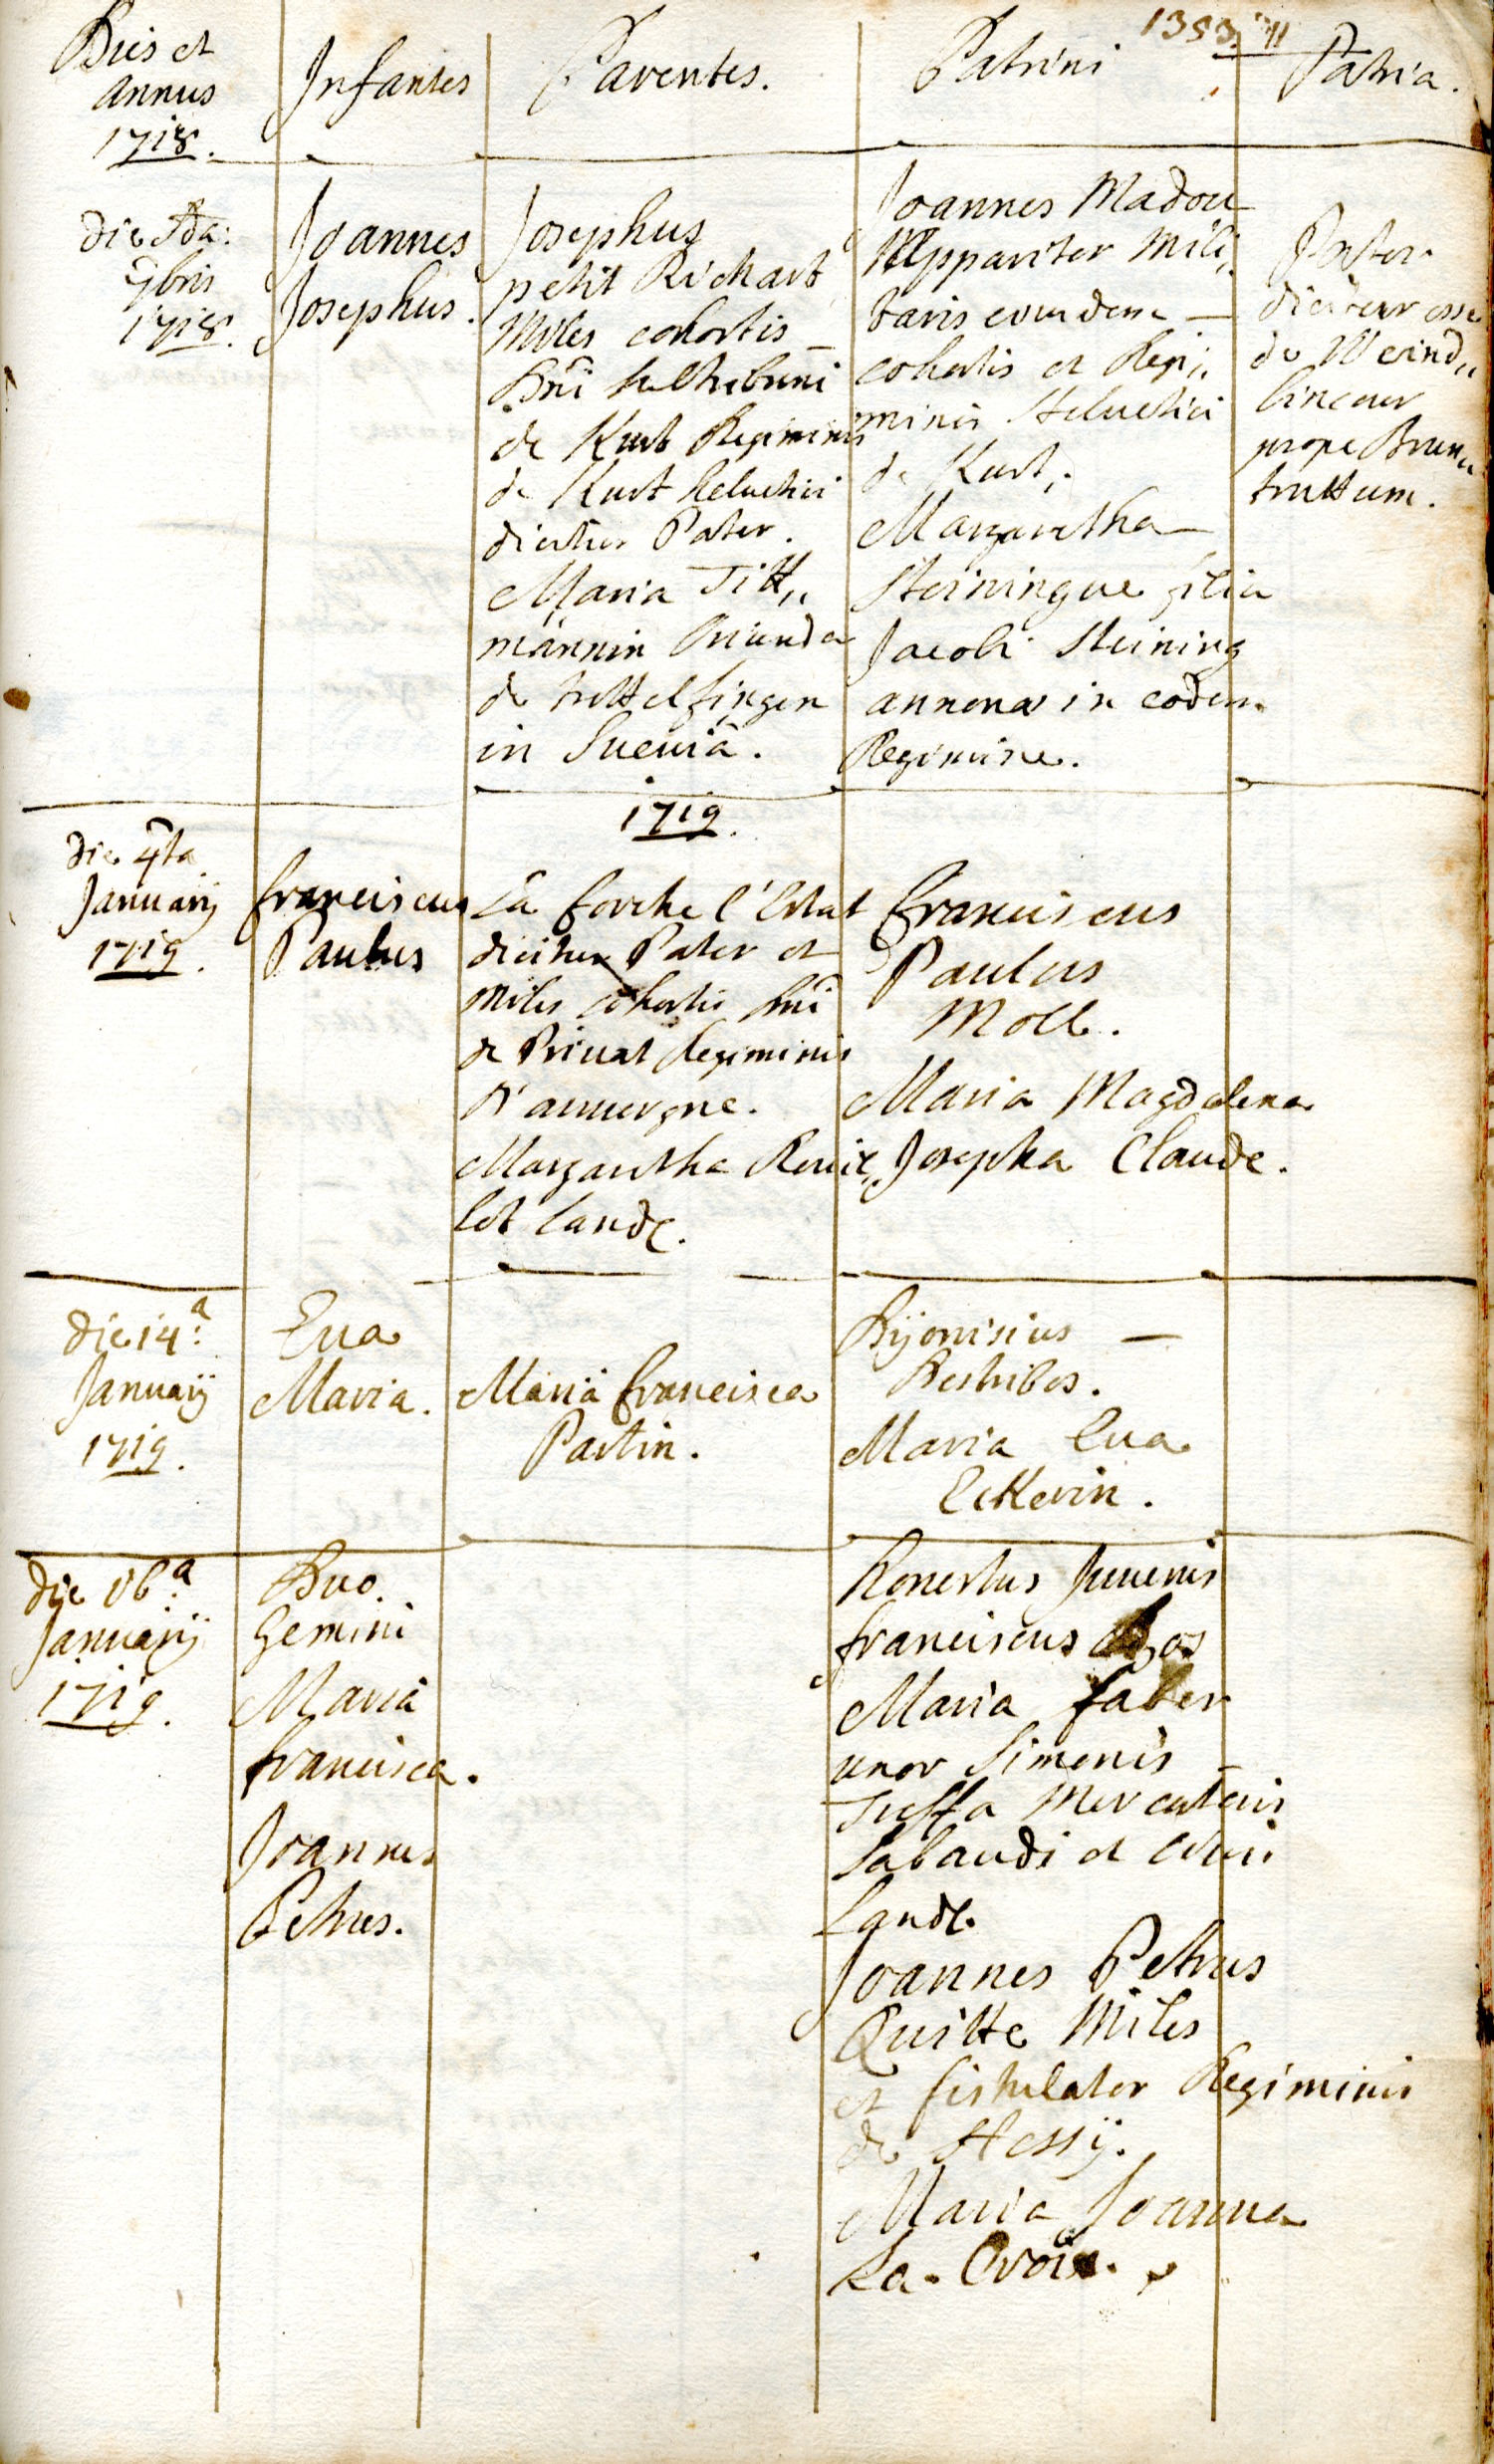 Dies et
annus
1718.
Infantes
Parentes.
Patrini
Patria.
die
9bris
1718.
Joannes
Josephus.
Josephus
petit Richart
Miles cohortis
Dni
de Kurt Regiminis
de Kurt heluetici
dicitur Pater.
Maria Titt„
männin Oriunda
de tuttelfingen
in Sueuiâ.
Joannes Madou
Appariter Mili„
taris eiusdem
cohortis et Regi„
minis Heluetici
de Kurt.
Margaretha
Steiningue filia
Jacobi Steining
in eodem
Regimine.
Pater
dicitur esse
de
lincour
prope Brun„
truttum.
1719.
die 4ta
Januarij
1719.
franciscus
Paulus
La forche l'Estat
dicitur Pater et
Miles cohortis Dni
de Priuat Regiminis
d'auuergne.
Margaretha
lande.
franciscus
Paulus
Moll.
Maria Magdalena
Josepha Claude.
die 14a:
Januarij
1719.
Eua
Maria.
Maria francisca
Partin.
Dijonisius
Maria Eua
Eckerin.
die 16a:
Januarij
1719.
Duo.
Gemini
Maria
francisca.
Joannes
Petrus.
Honestus Juuenis
franciscus
Maria faber
uxor Simonis
Mercatoris
Sabaudi et Ciuis
Land.
Joannes Petrus
Quitte Miles
et fistulator Regiminis
de Hessÿ.
Maria Joanna
La. Croix.